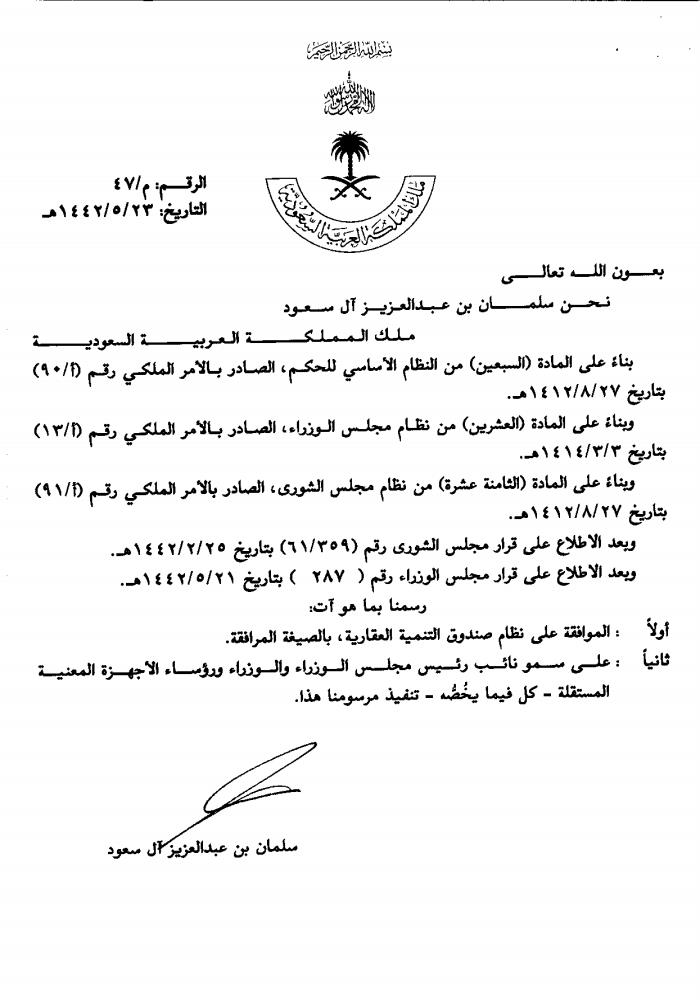 بسم الله الرحمن الرحيم
لا إله إلا الله محمد رسول الله
ملك المملكة العربية السعودية
الرقـــم: م/٤٧
التاريخ: ١٤٤٢/٥/٢٣هـ
بعـــون اللـــه تعالـــى
نحـــن سلمـــــان بن عبدالعزيـز آل سعـود
ملـك الـمـمـلـكــــــة العـربيــــــة السعوديــــــة
بناءً على المادة (السبعين) من النظام الأساسي للحكم، الصادر بـالأمر الملكي رقـم (أ/٩٠)
بتاريخ ١٤١٢/٨/٢٧هـ.
وبناءً على المادة (العشرين) من نظـام مجلس الـوزراء، الصادر بـالأمر الملكي رقـم (أ/١٣)
بتاريخ ١٤١٤/٣/٣هـ.
وبناءً على المادة (الثامنة عشرة) من نظام مجلس الشورى، الصادر بالأمر الملكي رقـم (أ/٩١)
بتاريخ ١٤١٢/٨/٢٧هـ.
وبعد الاطلاع على قرار مجلس الشورى رقم (٦١/٣٥٩) بتاريخ ١٤٤٢/٢/٢٥هـ.
وبعد الاطلاع على قرار مجلس الوزراء رقم ( ٢٨٧ ) بتاريخ ١٤٤٢/٥/٢١هـ.
رسمنا بما هو آت:
أولاً : الموافقة على نظام صندوق التنمية العقارية، بالصيغة المرافقة.
ثانياً : علـى سمو نائـب رئـيس مجلـس الـوزراء والـوزراء ورؤساء الأجهـزة المعنيـة
المستقلة – كل فيما يخُصُّه – تنفيذ مرسومنا هذا.
سلمان بن عبدالعزيز آل سعود